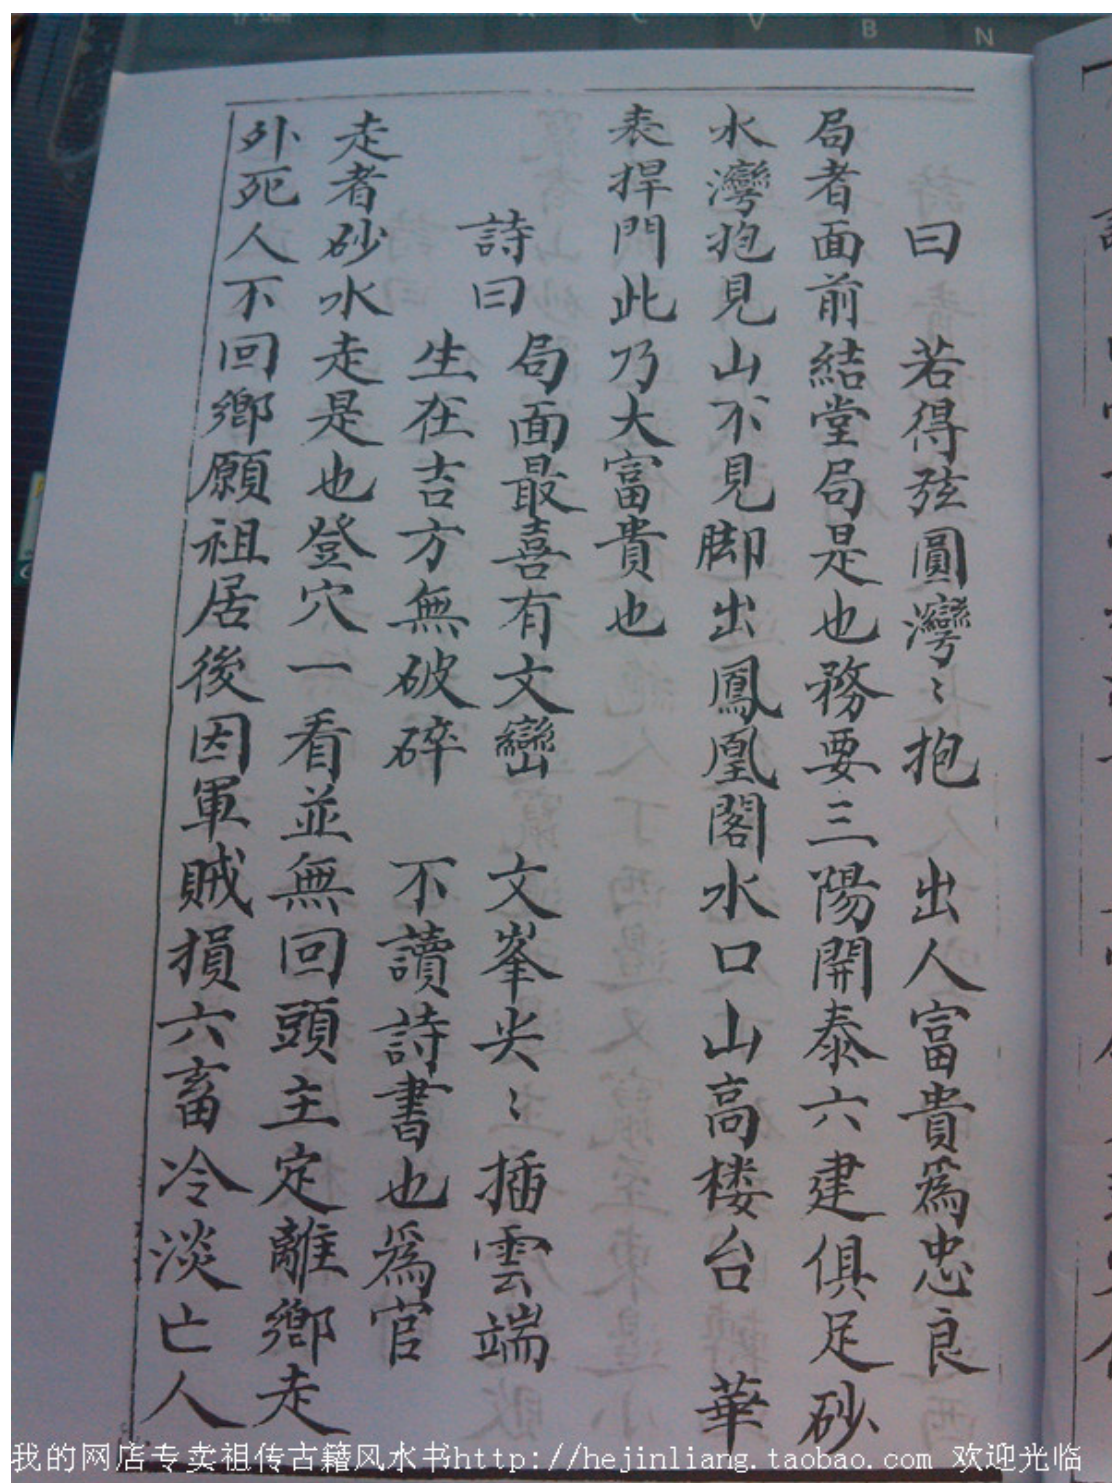 曰 若得弦圓灣〻抱 出人富貴爲忠良
局者面前結堂局是也務要三陽開泰六建俱足砂
水灣抱見山不見脚出鳳凰閣水口山高楼台 華
表捍門此乃大富貴也
詩曰 局面最喜有文巒 文峯尖〻插雲端
生在吉方無破碎 不讀詩書也爲官
走者砂水走是也登穴一看並無回頭主定離鄉走
外死人不回鄉願祖居後因軍賊損六畜冷淡亡人
V B N
我的网店专卖祖传古籍风水书http://hejinliang.taobao.com 欢迎光临